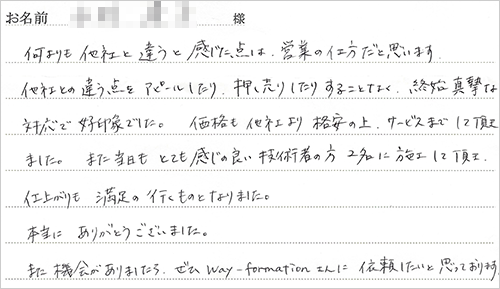 お名前 様
何よりも他社と違うと感じた点は、営業の仕方だと思います。
他社との違う点をアピールしたり、押し売りしたりすることなく、終始真摯な
対応で好印象でした。 価格も他社より格安の上、サービスまでして頂き
ました。 また当日もとても感じの良い技術者の方2名に施工して頂き、
仕上がりも満足の行くものとなりました。
本当に ありがとうございました。
また機会がありましたら、ぜひway-formationさんに依頼したいと思っております。